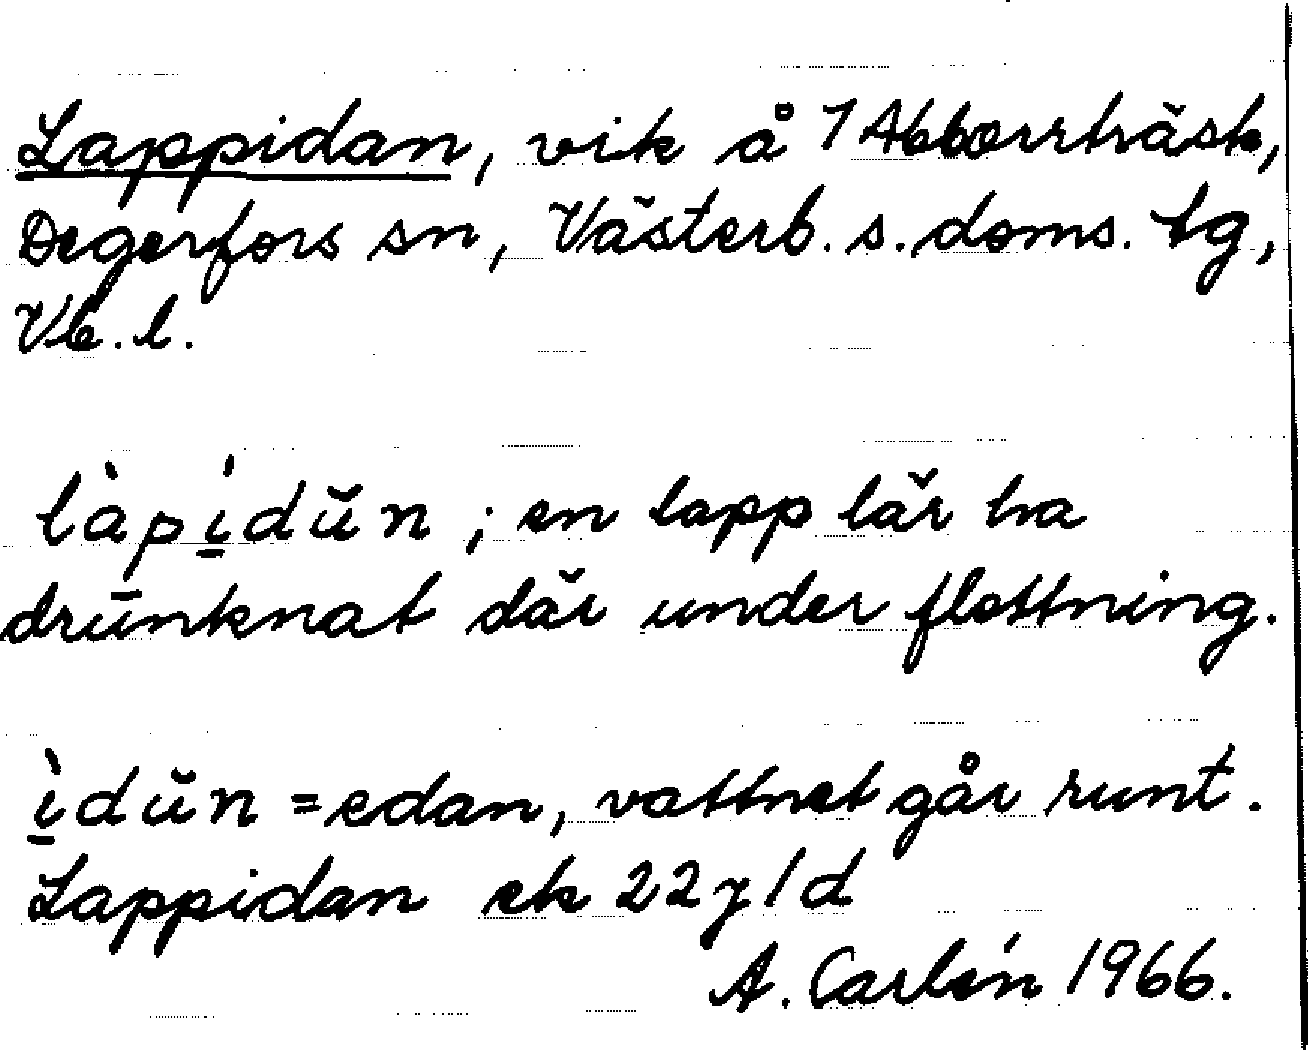 Lappidan, vik å 7 Abborrträsk,
Degerfors sn, Västerb. s. doms. tg,
Vb. l.
làpi̱̍dŭn ; en lapp lär ha
drunknat där under flottning.
ì̱dŭn = edan, vattnet går runt.
Lappidan ek 22 7 / d
A. Carlén 1966.